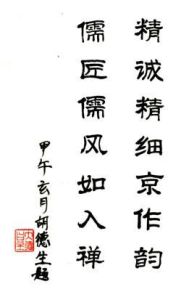 精诚精细京作韵
儒匠儒风如入禅
甲午玄月胡德生题